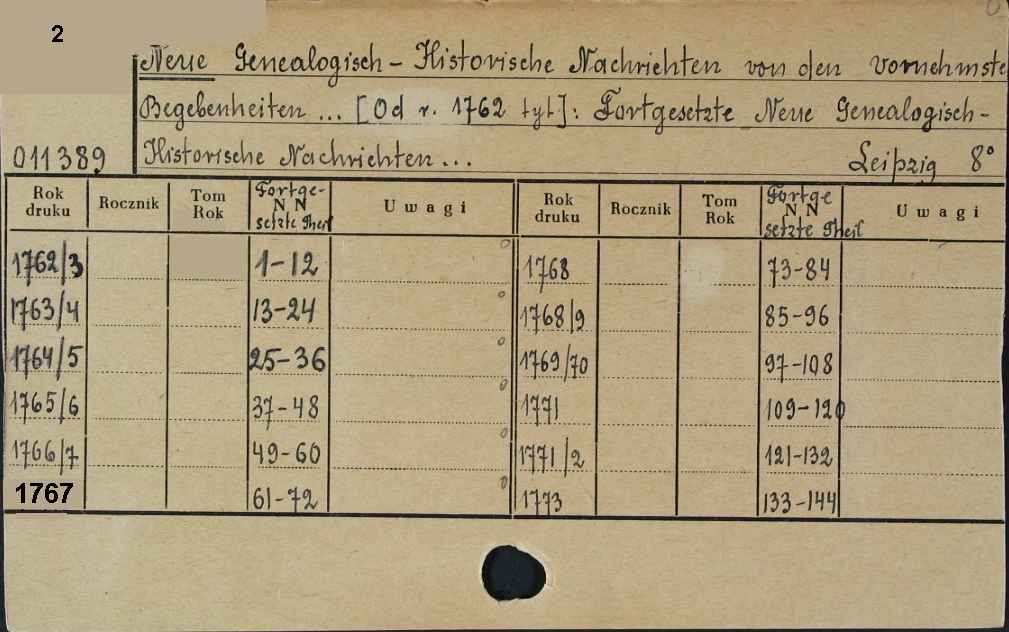 2
Neue Genealogisch – Historische Nachrichten von den vornehmste
Begebenheiten ... [Od r. 1762 tyt]: Fortgesetzte Neue Genealogisch –
011389 Historische Nachrichten ... Leipzig 8°
Rok druku Rocznik Tom Rok Fortge- N N setzte Theil Uwagi Rok druku Rocznik Tom Rok Fortge N N setzte Theil Uwagi
1762/3 1–12 0 1768 73–84
1763/4 13–24 0 1768/9 85–96
1764/5 25–36 0 1769/70 97–108
1765/6 37–48 0 1771 109–120
1766/7 49–60 0 1771/2 121–132
1767 61–72 0 1773 133–144